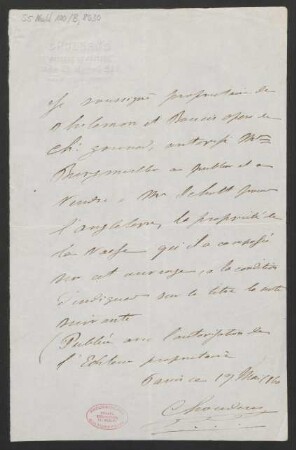 55 Nachl 100/B,
Je soussigné propriétaire de
Philémon et Baucis opéra de
Ch. Gounod, autorise Mr
Burgmuller a publier et a
vendre a Mr Schott pour
l'angleterre, la propriété de
la Valse qu'il a composée
sur cet ouvrage, a la condition
d'indiquer sur le titre la note
suivante
(Publié avec l'autorisation de
l'Editeur propriétaire
Paris ce 17 Mai 1860
Choudens